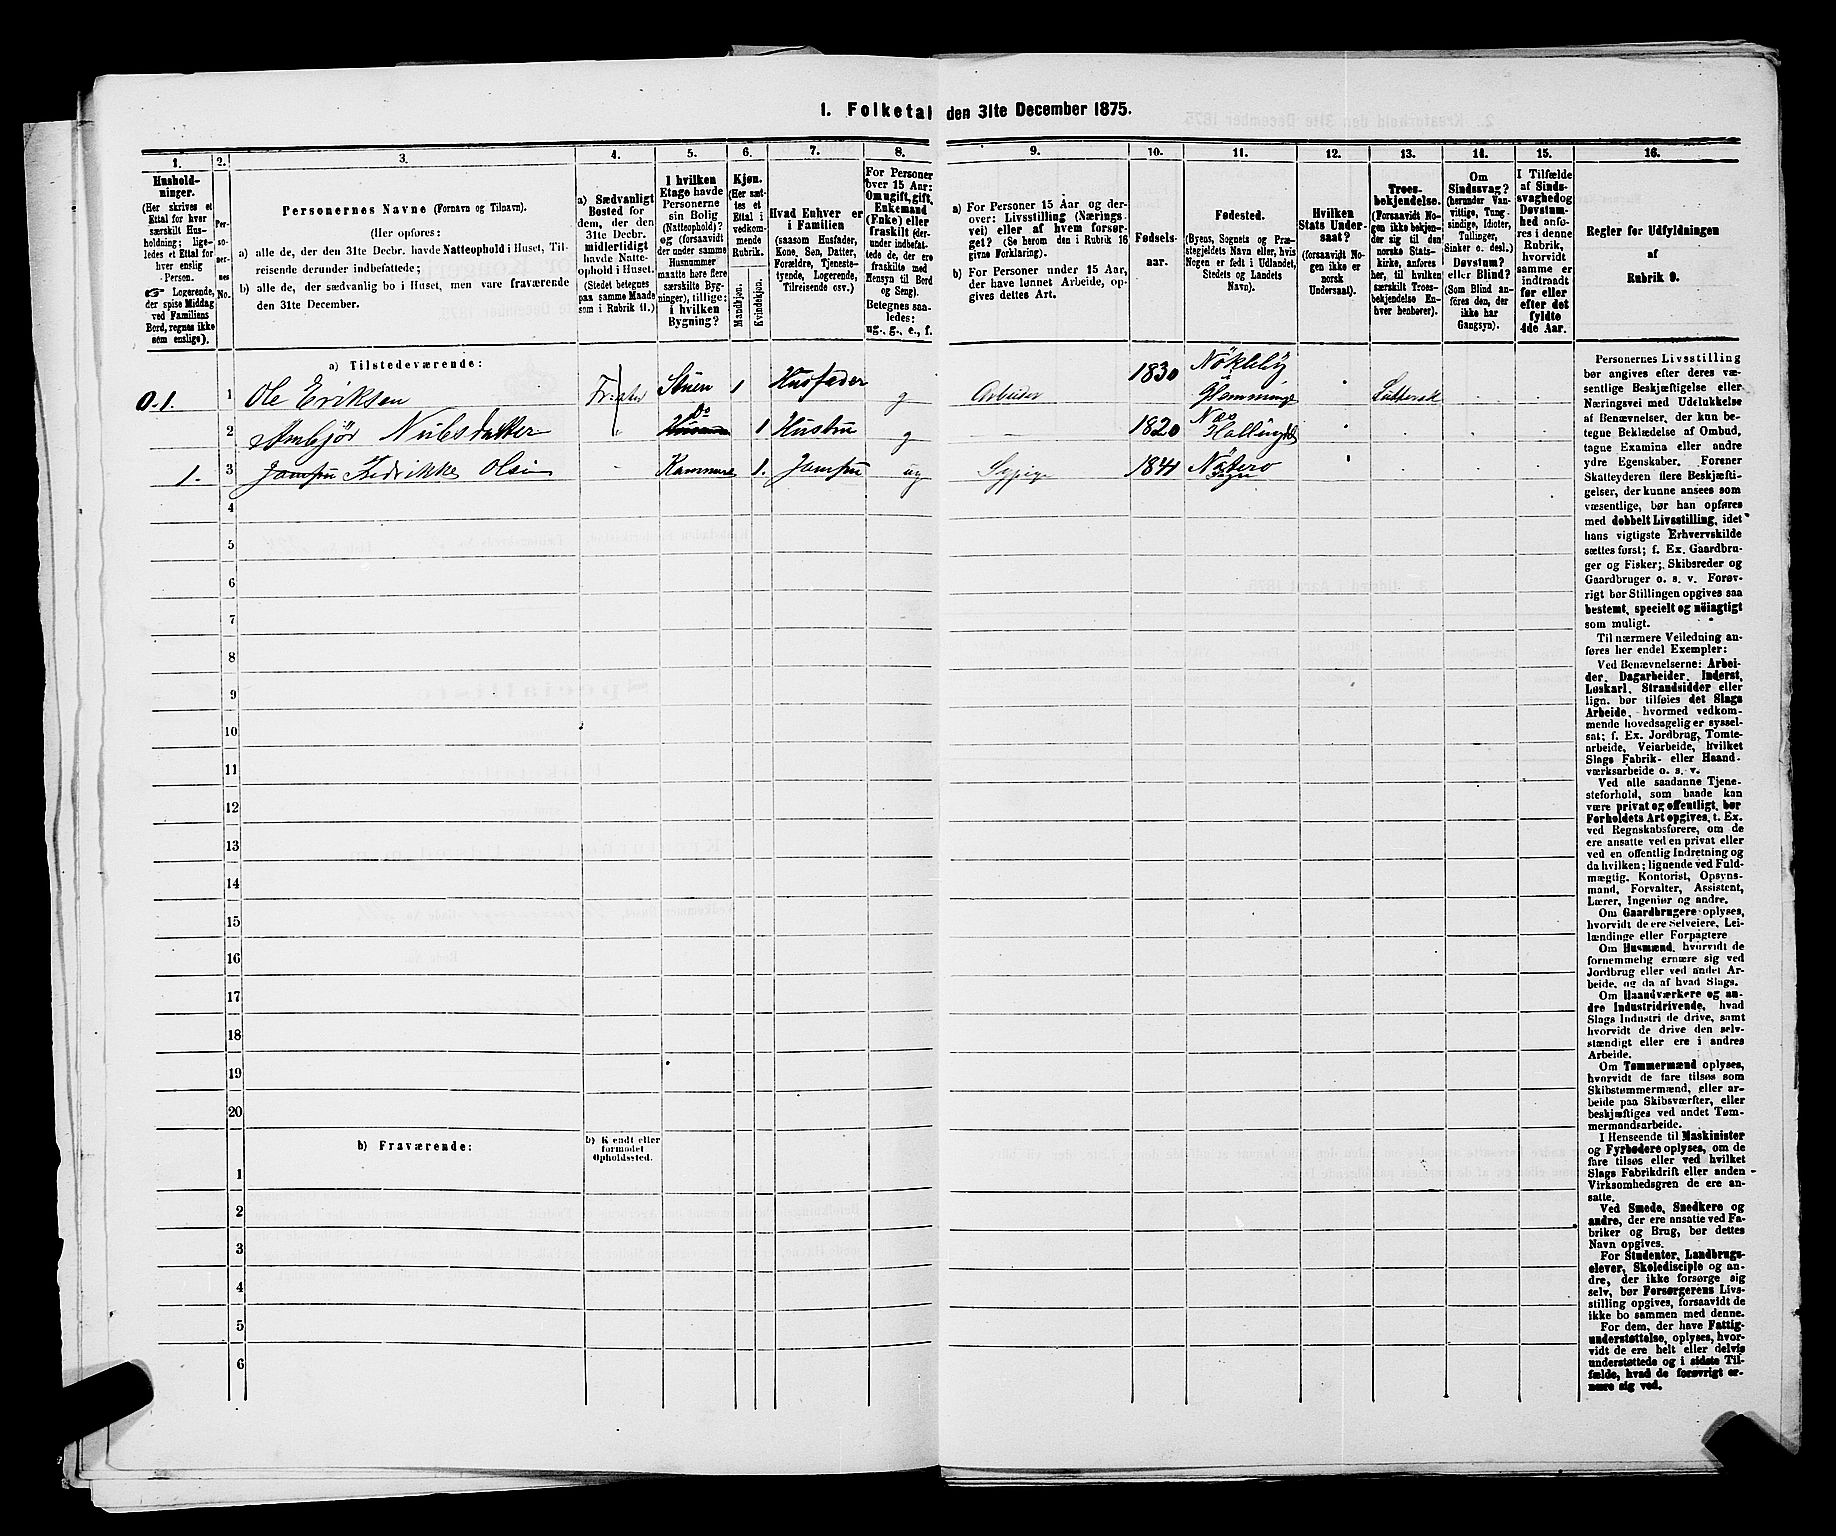 1. Folketal den 31te December 1875.
1.
2.
3.
4.
5.
6.
7.
8.
9.
10.
11.
12.
13.
14.
15.
16.
Hushold-
ninger.
(Her skrives et
Ettal for hver
særskilt Hus-
holdning; lige-
ledes et Ettal for
hver enslig
Person.
☞ Logerende,
der spise Middag
ved Familiens
Bord, regnes ikke
som enslige).
Per-
so-
ner-
nes
No.
Personernes Navne (Fornavn og Tilnavn).
(Her opføres:
a) alle de, der den 31te Decbr. havde Natteophold i Huset, Til-
reisende derunder indbefattede;
b) alle de, der sædvanlig bo i Huset, men vare fraværende
den 31te December.
a) Sædvanligt
Bosted for
dem, der den
31te Decbr.
midlertidigt
havde Natte-
ophold i Huset.
(Stedet betegnes
paa samme Maade
som i Rubrik 11.)
I hvilken
Etage havde
Personerne
sin Bolig
(Natteophold)?
og (forsaavidt
der under samme
Husnummer
maatte høre flere
særskilte Byg-
ninger), tillige:
i hvilken
Bygning?
Kjøn.
(Her sæt-
tes et
Ettal i
vedkom-
mende
Rubrik.
Mandkjøn.
Kvindekjøn.
Hvad Enhver er
i Familien
(saasom Husfader,
Kone, Søn, Datter,
Forældre, Tjeneste-
tyende, Logerende,
Tilreisende osv.)
For Personer
over 15 Aar:
Om ugift, gift,
Enkemand
(Enke) eller
fraskilt (der-
under indbefat-
tede de, der ere
fraskilte med
Hensyn til Bord
og Seng).
Betegnes saa-
ledes:
ug., g., e., f.
a) For Personer 15 Aar og der-
over: Livsstilling (Nærings
vei) eller af hvem forsør-
get? (Se herom den i Rubrik 16
givne Forklaring).
b) For Personer under 15 Aar,
der have lønnet Arbeide, op-
gives dettes Art.
Fødsels-
aar.
Fødested.
(Byens, Sognets og Præ-
stegjeldets Navn eller, hvis
Nogen er født i Udlandet,
Stedets og Landets
Navn).
Hvilken
Stats Under-
saat?
(forsaavidt No-
gen ikke er
norsk
Undersaat).
Troes-
bekjendelse.
(Forsaavidt No-
gen ikke bekjen-
der sig til den
norske Stats-
kirke, anføres
her, til hvilken
særskilt Troes-
bekjendelse En-
hver henhører).
Om
Sindssvag?
(herunder Van-
vittige, Tung-
sindige, Idioter,
Tullinger,
Sinker o. desl.)
Døvstum?
eller Blind?
(Som Blind an-
føres den, der
ikke har
Gangsyn).
I Tilfælde
af Sinds-
svaghed og
Døvstum-
hed anfø-
res i denne
Rubrik,
hvorvidt
samme er
indtraadt
før eller
efter det
fyldte
4de Aar.
Regler for Udfyldningen
af
Rubrik 9.
a) Tilstedeværende:
0.1. 1 Ole Eriksen Stuen 1 Husfader g Arbeider 1830 Nökleby Luthersk
2 Ambjör Nielsdatter Do 1 Hustru g — 1820
1. 3 Jomfru Fredrikke Olsen Kammers 1. Jomfru ug Sypige Nötterø Sogn
4
5
6
7
8
9
10
11
12
13
14
15
16
17
18
19
20
b) Fraværende:
b) Kjendt eller
formodet
Opholdssted.
1
2
3
4
5
6
Personernes Livsstilling
bør angives efter deres væ-
sentlige Beskjæftigelse eller
Næringsvei med Udelukkelse
af Benævnelser, der kun be-
tegne Beklædelse af Ombud,
tagne Examina eller andre
ydre Egenskaber. Forener
Skatteyderen flere Beskjæfti-
gelser, der kunne ansees som
væsentlige, bør han opføres
med dobbelt Livsstilling, idet
hans vigtigste Erhvervskilde
sættes først; f. Ex. Gaardbru-
ger og Fisker; Skibsreder og
Gaardbruger o. s. v. Forøv-
rigt bør Stillingen opgives saa
bestemt, specielt og nøiagtigt
som muligt.
Til nærmere Veiledning an-
føres her endel Exempler:
Ved Benævnelserne: Arbei-
der, Dagarbeider, Inderst,
Løskarl, Strandsidder eller
lign. bør tilføies det Slags
Arbeide, hvormed vedkom-
mende hovedsagelig er syssel-
sat; f. Ex. Jordbrug, Tomte-
arbeide, Veiarbeide, hvilket
Slags Fabrik- eller Haand-
værksarbeide o. s. v.
Ved alle saadanne Tjene-
steforhold, som baade kan
være privat og offentligt, bør
Forholdets Art opgives, t. Ex.
ved Regnskabsførere, om de
ere ansatte ved en privat eller
ved en offentlig Indretning og
da hvilken; lignende ved Fuld-
mægtig, Kontorist, Opsyns-
mand, Forvalter, Assistent,
Lærer, Ingeniør og andre.
Om Gaardbrugere oplyses,
hvorvidt de ere Selveiere, Lei-
lændinge eller Forpagtere
Om Husmænd, hvorvidt de
fornemmelig ernære sig ved
Jordbrug eller ved andet Ar-
beide, og da af hvad Slags.
Om Haandværkere og an-
dre Industridrivende, hvad
Slags Industri de drive, samt
hvorvidt de drive den selv-
stændigt eller ere i andres
Arbeide.
Om Tømmermænd oplyses,
hvorvidt de fare tilsøs som
Skibstømmermænd, eller ar-
beide paa Skibsværfter, eller
beskjæftiges ved andet Tøm-
mermandsarbeide.
I Henseende til Maskinister
og Fyrbødere oplyses, om de
fare tilsøs eller ved hvilket
Slags Fabrikdrift eller anden
Virksomhedsgren de ere an-
satte.
Ved Smede, Snedkere og
andre, der ere ansatte ved Fa-
briker og Brug, bør dettes
Navn opgives.
For Studenter, Landbrugs-
elever, Skoledisciple og an-
dre, der ikke forsørge sig
selv, bør Forsørgerens Livs-
stilling opgives, forsaavidt de
ikke bo sammen med denne.
For dem, der have Fattig-
understøttelse, oplyses, hvor-
vidt de ere helt eller delvis
understøttede og i sidste Til-
fælde, hvad de forøvrigt er-
nære sig ved.